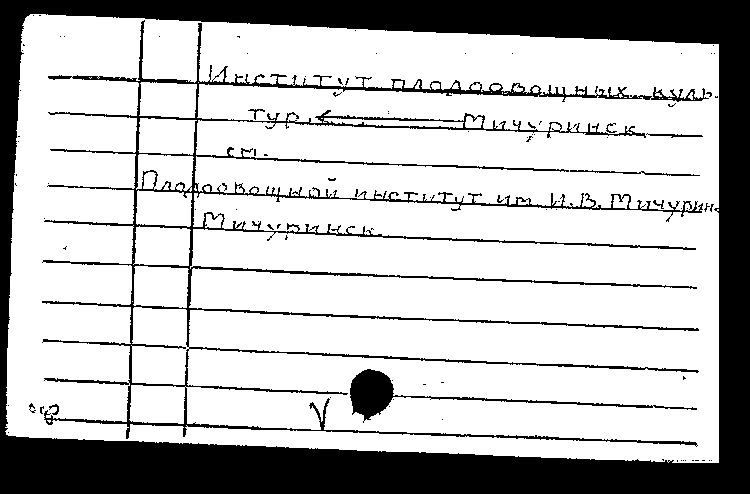 Институт плодоовощных куль-
тур. ← Мичуринск.
см.
Плодоовощной институт им. И.В. Мичурин-
Мичуринск.
V